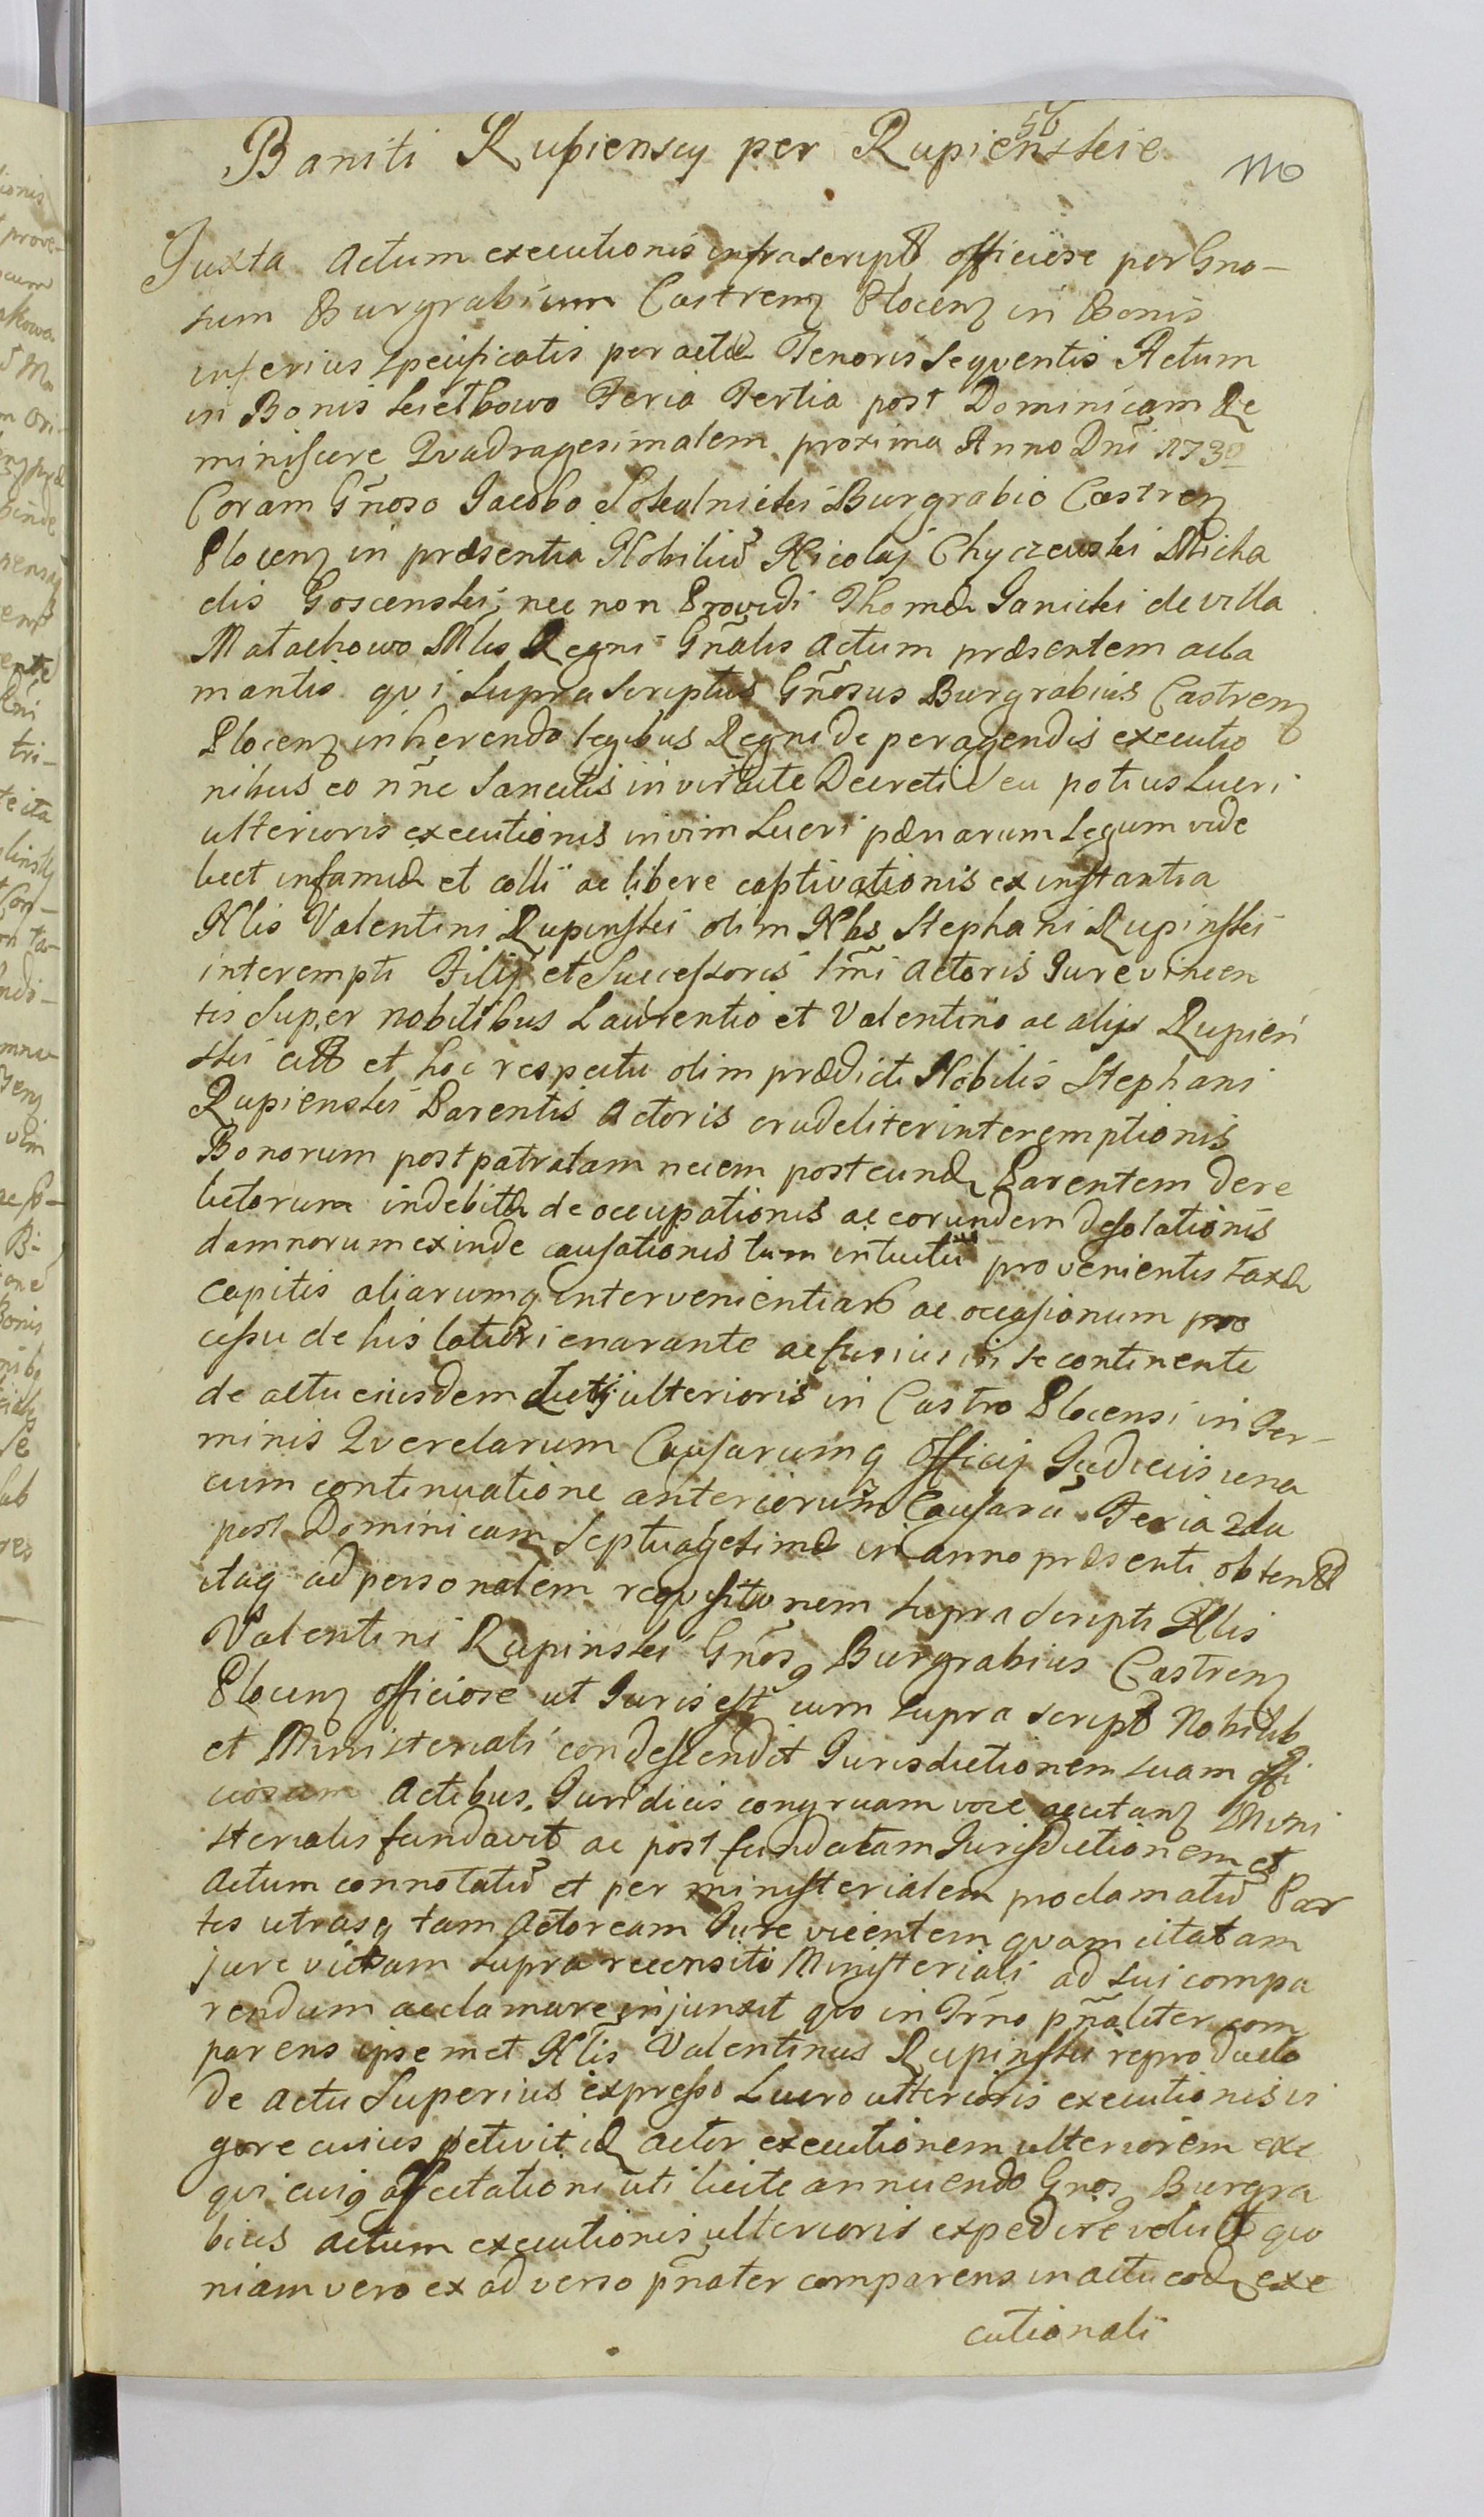 56
Baniti Rupiensĉy per Rupienskie
Juxta Actum executionis infrascript officiose per Gno-
sum Burgrabium Castren Plocen in Bonis
inferius specificatis peractæ Tenoris seqventis Actum
in Bonis Feria Tertia post Dominicam Re
miniscere Qvadragesimalem proxima Anno Dni 1732
Coram Gñoso Jacobo Sokolnicki Burgrabio Castren
Plocen in præsentia Nobiliũ Nicolaj Chyczewski Micha
elis Goscenski, nec non Providi Thomæ Janicki de villa
Matachowo Mlis Regni Gñalis Actum præsentem acla
mantis qvi supra scriptus Gñosus Burgrabius Castren
Plocen inherendo legibus Regni de peragendis executio
nibus eo nñe sancitis in virtute Decreti seu potius Lucri
ulterioris executionis in vim Lucri pænarum Legum vide
licet infamiæ et colli ac libere captivationis ex instantia
Nlis Valentini Rupinski olim Nlis Stephani Rupinski
interempti Filij et Successoris Actoris Jure vincen
tis super nobilibus Laurentio et Valentino ac alijs Rupien
ski et hoc respectu olim prædicti Nobilis Stephani
Rupienski Parentis Actoris crudeliter interemptionis
Bonorum post patratam necem post eund Parentem dere
lictorum indebitæ de occupationis ac eorundem desolationis
damnorum exinde causationis tum intuitu provenientis taxæ
capitis aliarumq intervenientiar ac occasionum pro
cessu de his latiori enarante ac fusius in se continente
de actu eiusdem Lucri ulterioris in Castro Plocensi in Ter-
minis Qverelarum Causarumq officij Judiciis una
cum continuatione anteriorum Causarũ Feria 2da
post Dominicam Septuagesimæ in anno præsenti obtent
itaq ad personalem reqvisitionem supra scripti Nlis
Valentini Rupinski Gñosq Burgrabius Castren
Plocen officiose ut Juris est cum supra script Nobilib
et Ministeriali condescendit Jurisdictionem suam offi
ciosam Actibus Juridicis congruam voce Mini
sterialis fundavit ac post fundatam Jurisdictionem et
Actum connotatũ et per ministerialem proclamatũ Par
tes utrasq tam Actoream Jure vicentem qvam citatam
jure victam supra recensito Ministeriali ad sui compa
rendum acclamare injunxit qvo in Trño pñaliter com
parens ipsemet Nlis Valentinus Rupinski reproducto
de actu Superius expresso Lucro ulterioris executionis vi
gore cuius petivit Actor executionem ulteriorem exe
qvi cuiq affectationi uti licite annuendo Gnosq Burgra
bius Actum executionis ulterioris expedire voluit qvo
niam vero ex adverso pñater comparens in actu eod exe
cutionali